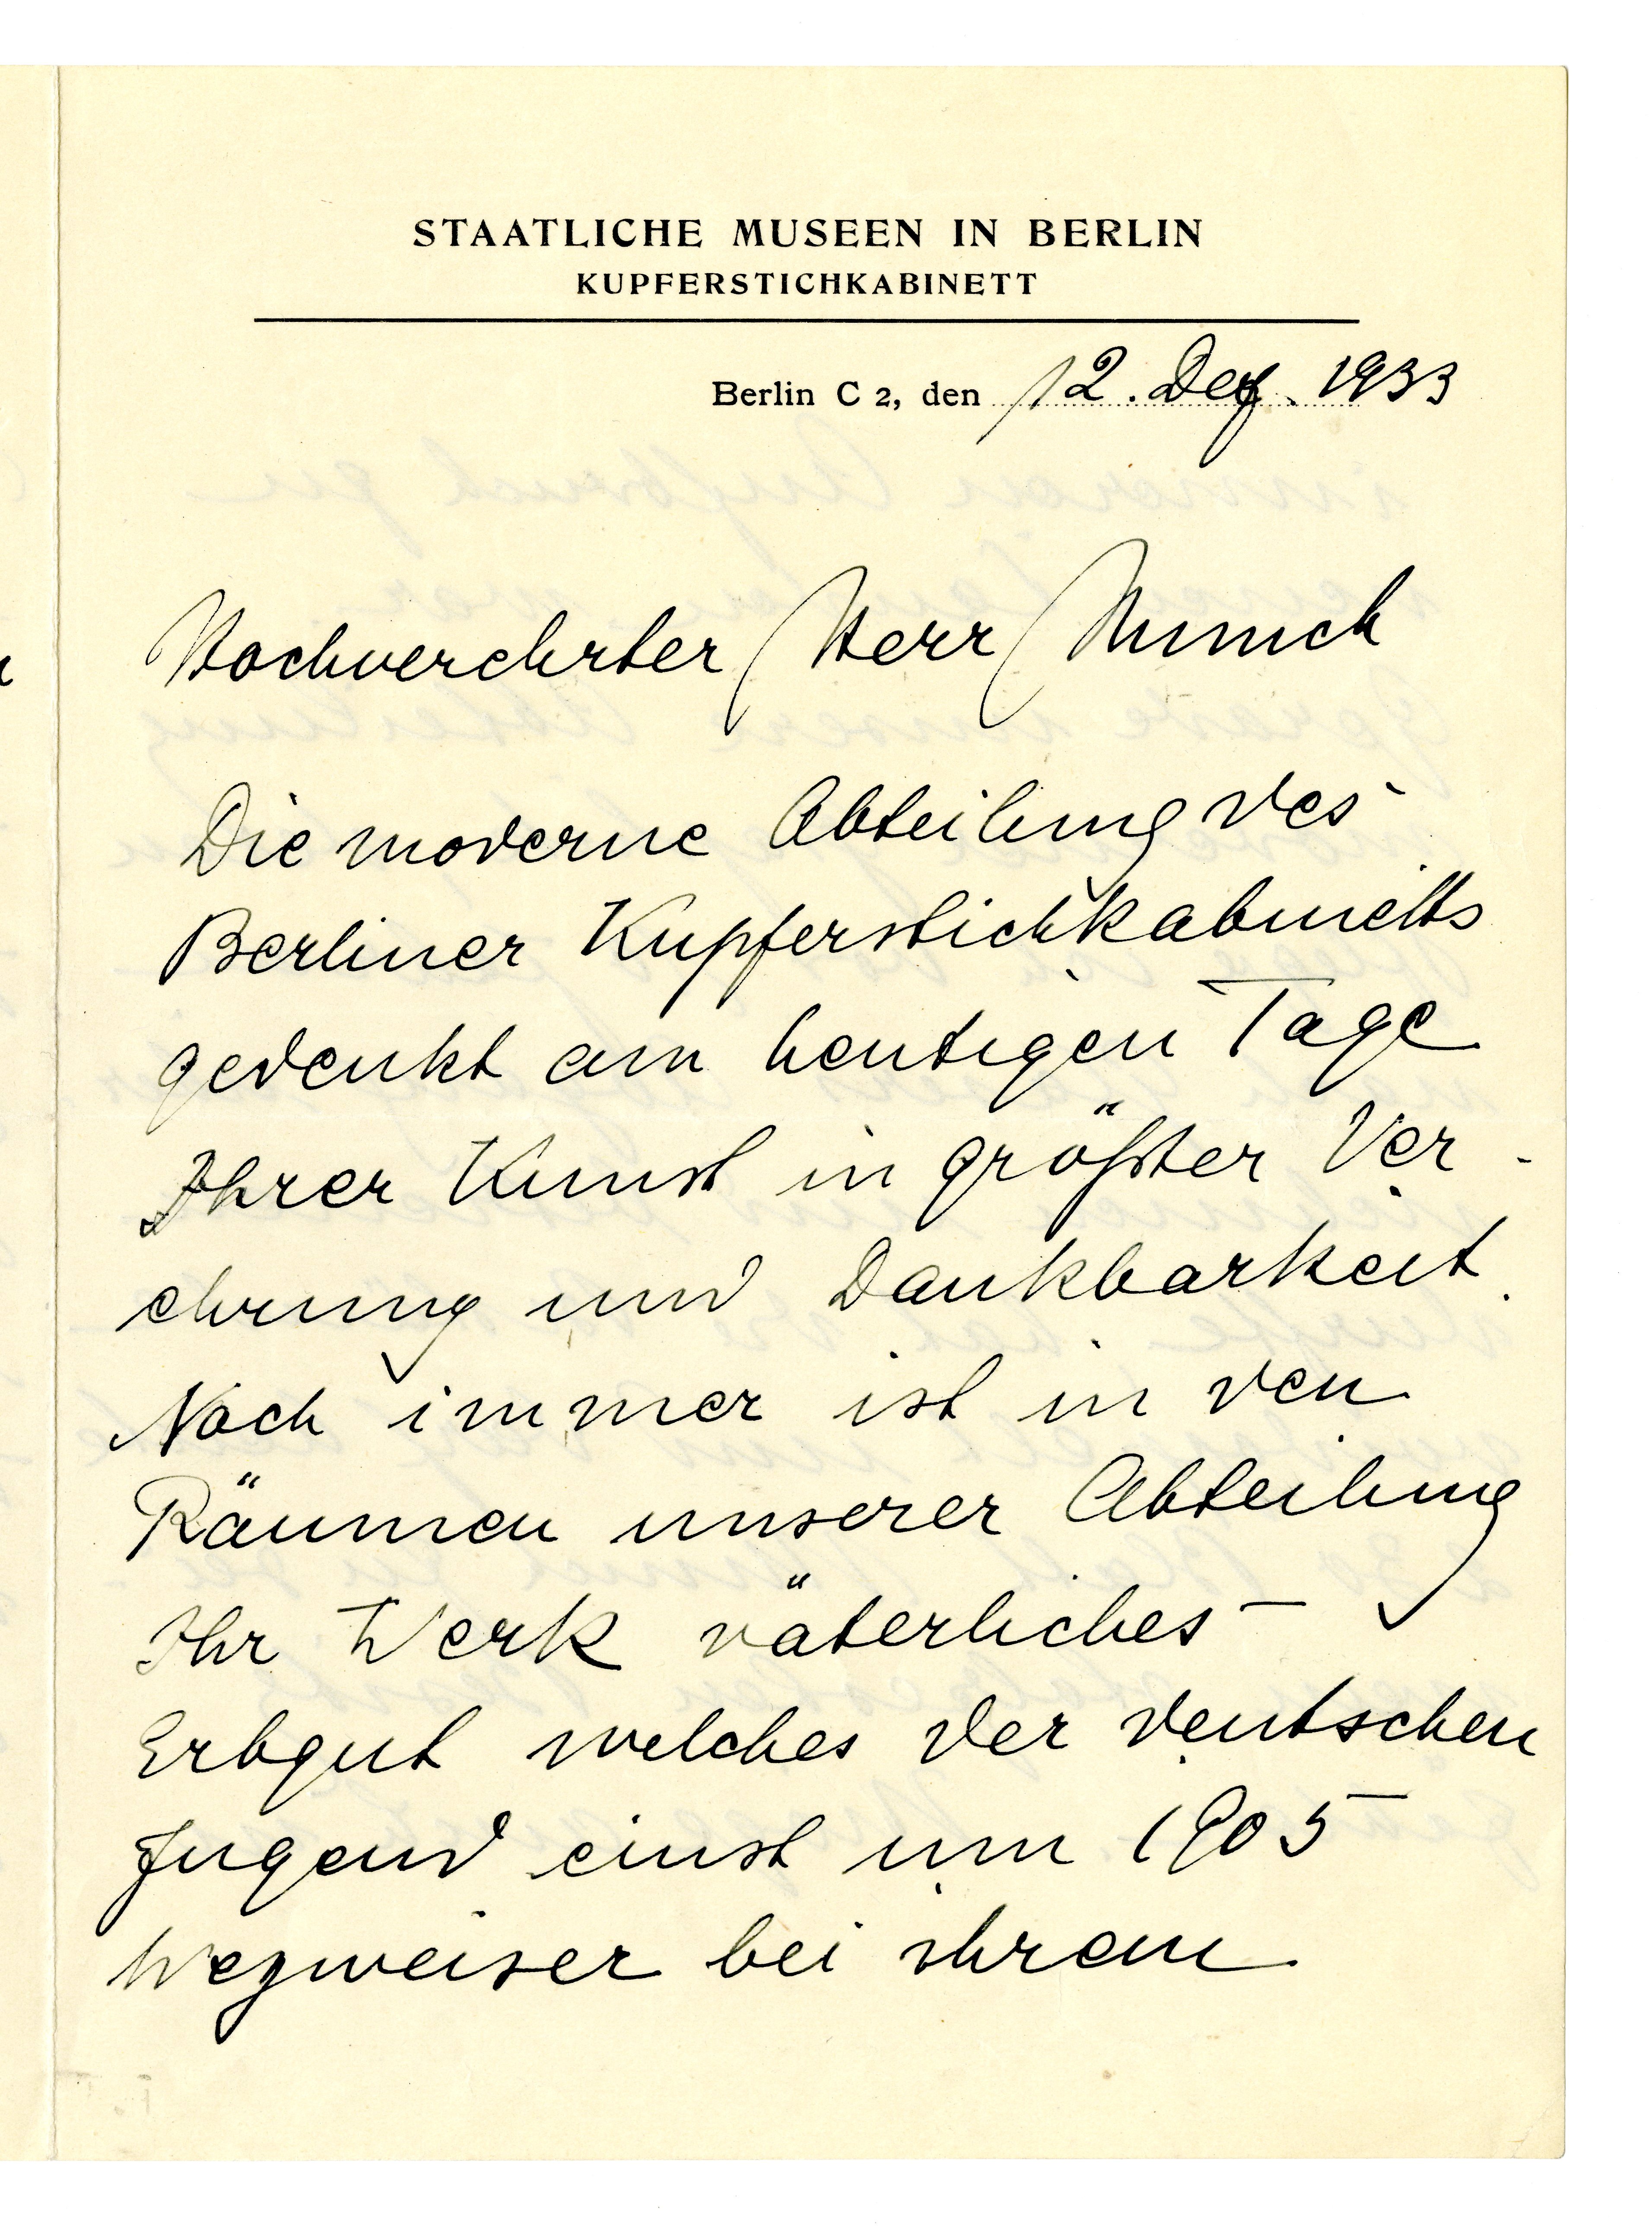 STAATLICHE MUSEEN IN BERLIN
KUPFERSTICHKABINETT
Berlin C 2, den 12. Dez. 1933
Hochverehrter Herr Munch
Die moderne Abteilung des
Berliner Kupferstichkabinetts
gedenkt am heutigen Tage
Ihrer Kunst in größter Ver-
ehrung und Dankbarkeit.
Noch immer ist in den
Räumen unserer Abteilung
Ihr Werk väterliches
Erbgut welches der deutschen
Jugend einst um 1905
Wegweiser bei ihrem